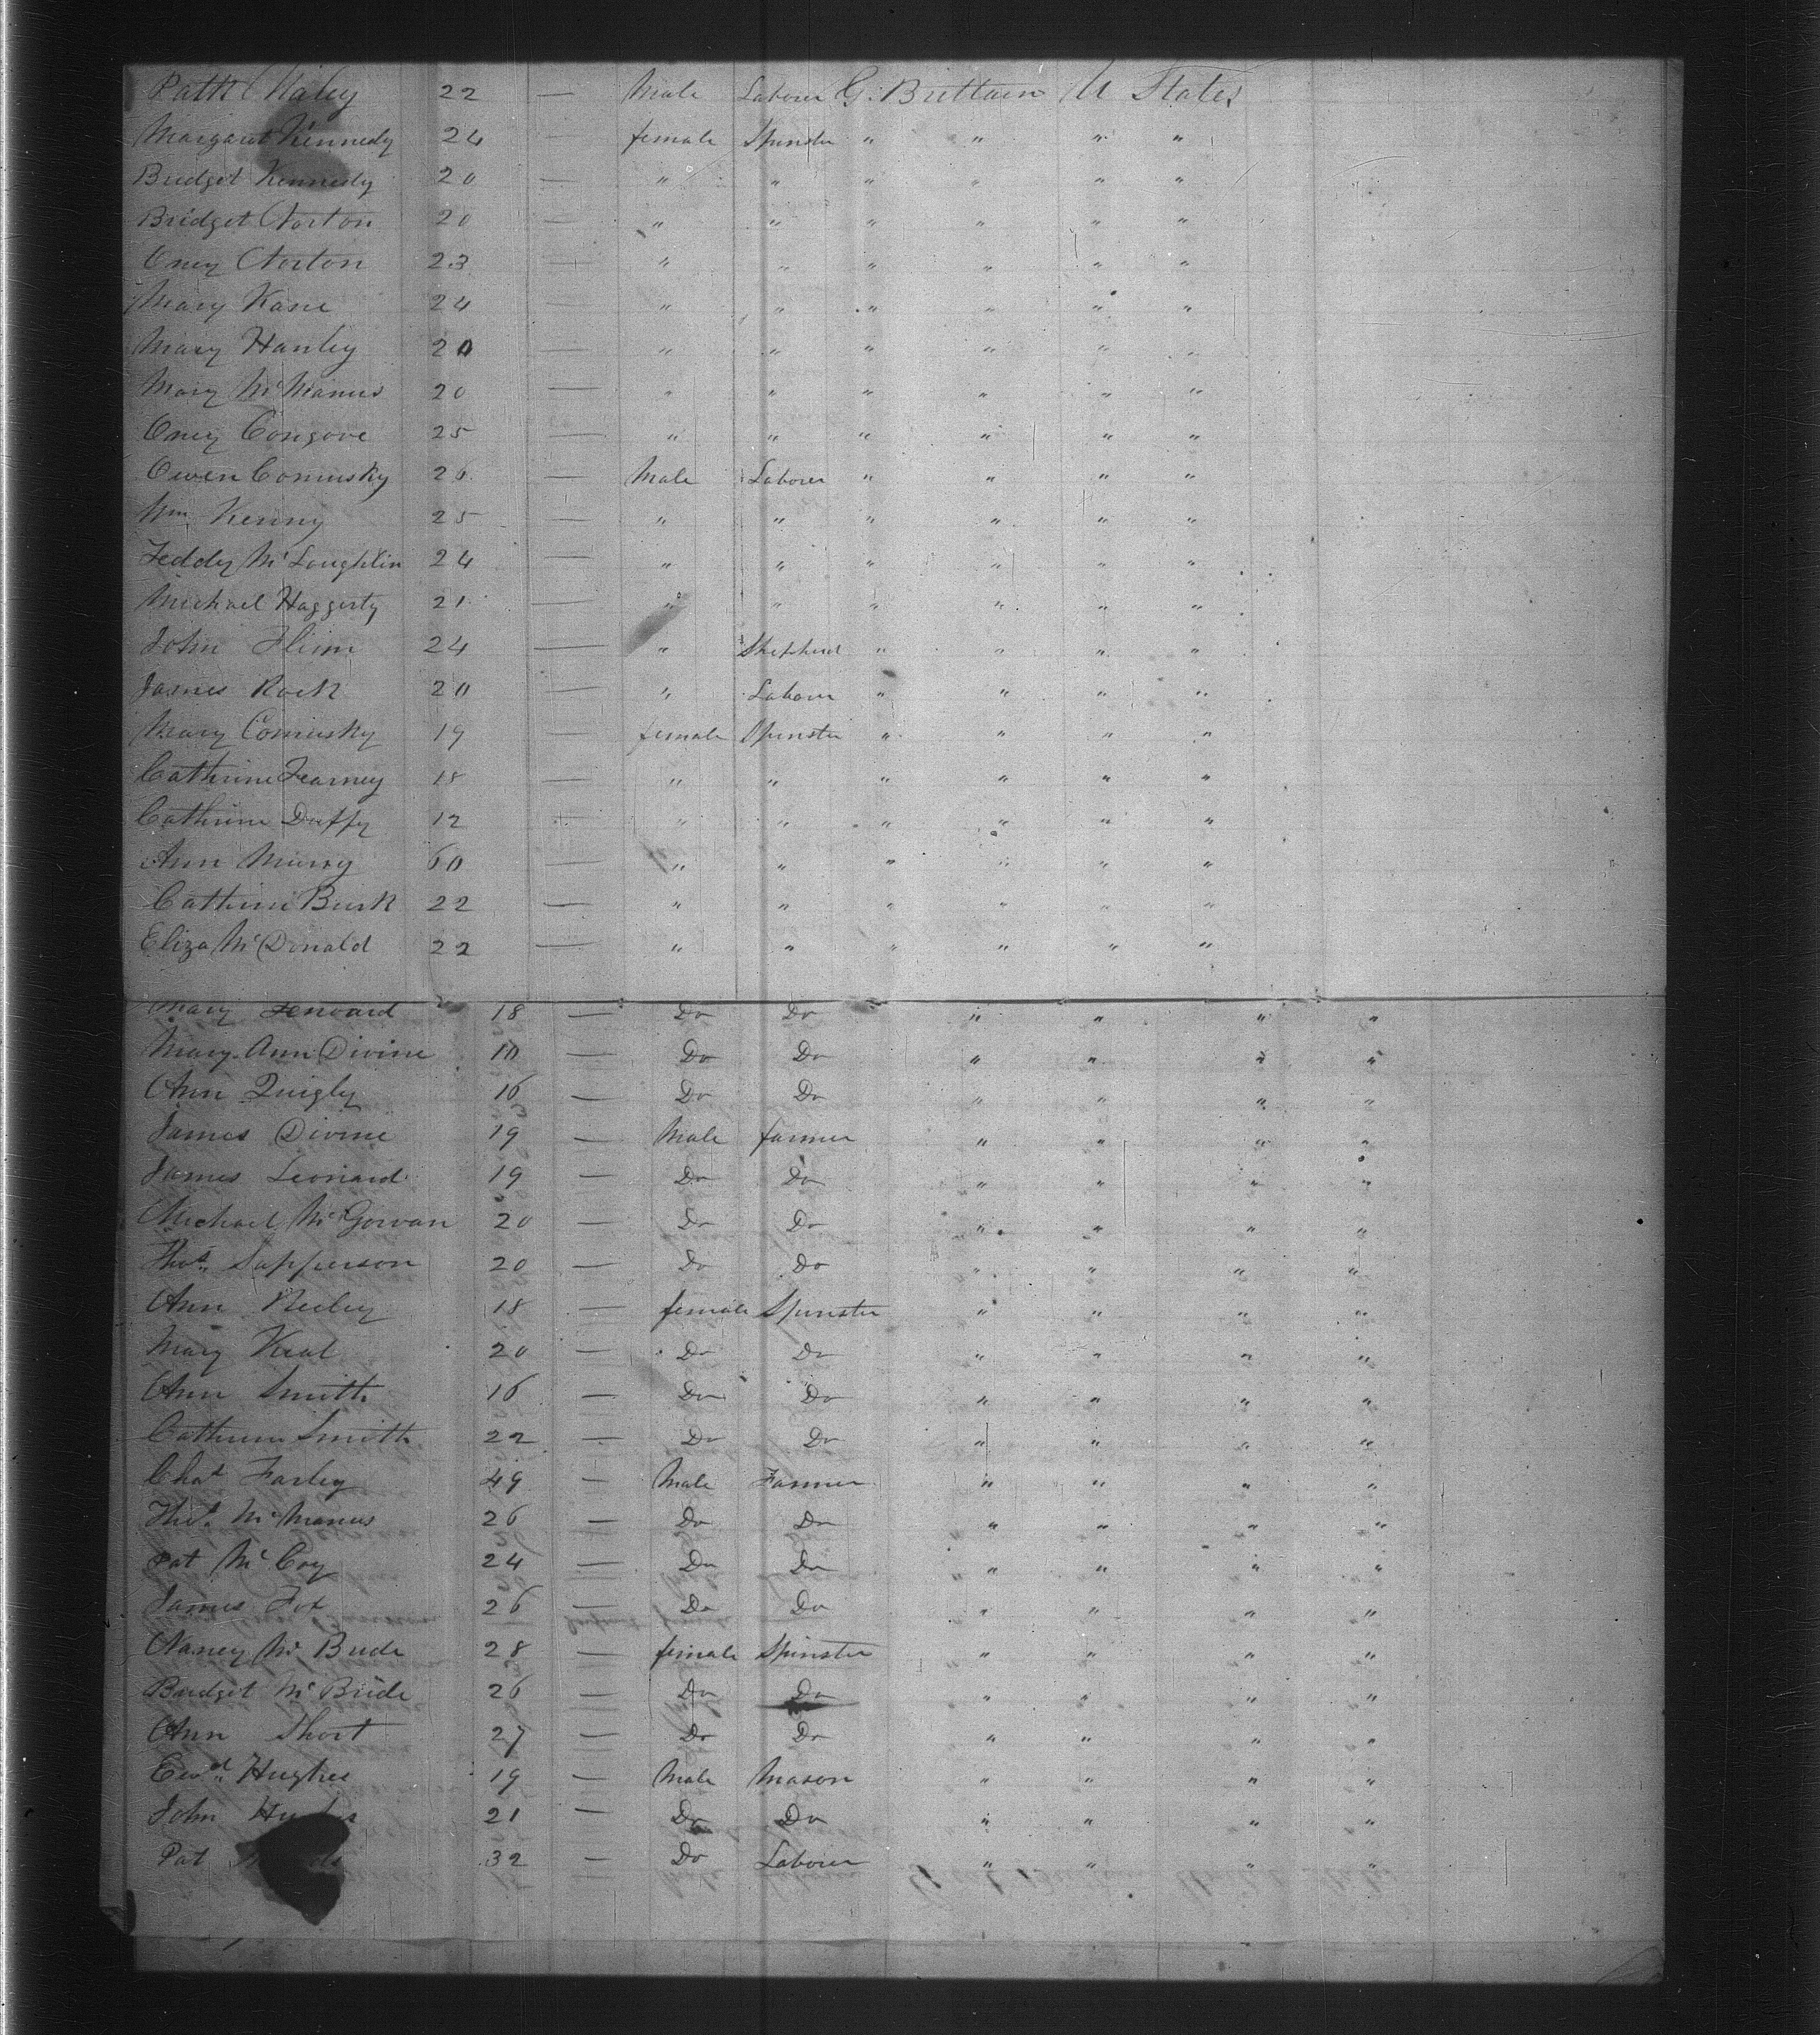 Patk Haley 22 — Male Laborer G. Brittain U States
Margaret Kennedy 24 — female Spinster " " " "
Bridget Kennedy 20 — " " " " " "
Bridget Norton 20 — " " " " " "
Oney Norton 23 — " " " " " "
Mary Kane 24 — " " " " " "
Mary Hanley 20 — " " " " " "
Mary McManus 20 — " " " " " "
Oney Congove 25 — " " " " " "
Owen Comusky 26 — Male Laborer " " " "
Wm Kenny 25 — " " " " " "
Teddy McLoughlin 24 — " " " " " "
Michael Haggerty 21 — " " " " " "
John Flinn 24 — " Shepherd " " " "
James Rock 20 — " Laborer " " " "
Mary Comusky 19 — female Spinster " " " "
Cathrine Fearney 18 — " " " " " "
Cathrine Duffy 12 — " " " " " "
Ann Murry 60 — " " " " " "
Cathrine Burk 22 — " " " " " "
Eliza McDonald 22 — " " " " " "
Mary 18 — Do Do " " " "
Mary Ann Divine 10 — Do Do " " " "
Ann Quigly 16 — Do Do " " " "
James Divine 19 — Male farmer " " " "
James Leonard 19 — Do Do " " " "
Michael McGowan 20 — Do Do " " " "
Thos. Sapperson 20 — Do Do " " " "
Ann Neeley 18 — female Spinster " " " "
Mary Keat 20 — Do Do " " " "
Ann Smith 16 — Do Do " " " "
Catherine Smith 22 — Do Do " " " "
Chas Farley 49 — Male Farmer " " " "
Thos. McManus 26 — Do Do " " " "
Pat McCoy 24 — Do Do " " " "
James Fox 26 — Do Do " " " "
Nancy McBride 28 — female Spinster " " " "
Bridget McBride 26 — Do Do " " " "
Ann Short 27 — Do Do " " " "
Edwd. Hughes 19 — Male Mason " " " "
John Hughes 21 — Do Do " " " "
Pat 32 — Do Laborer " " " "